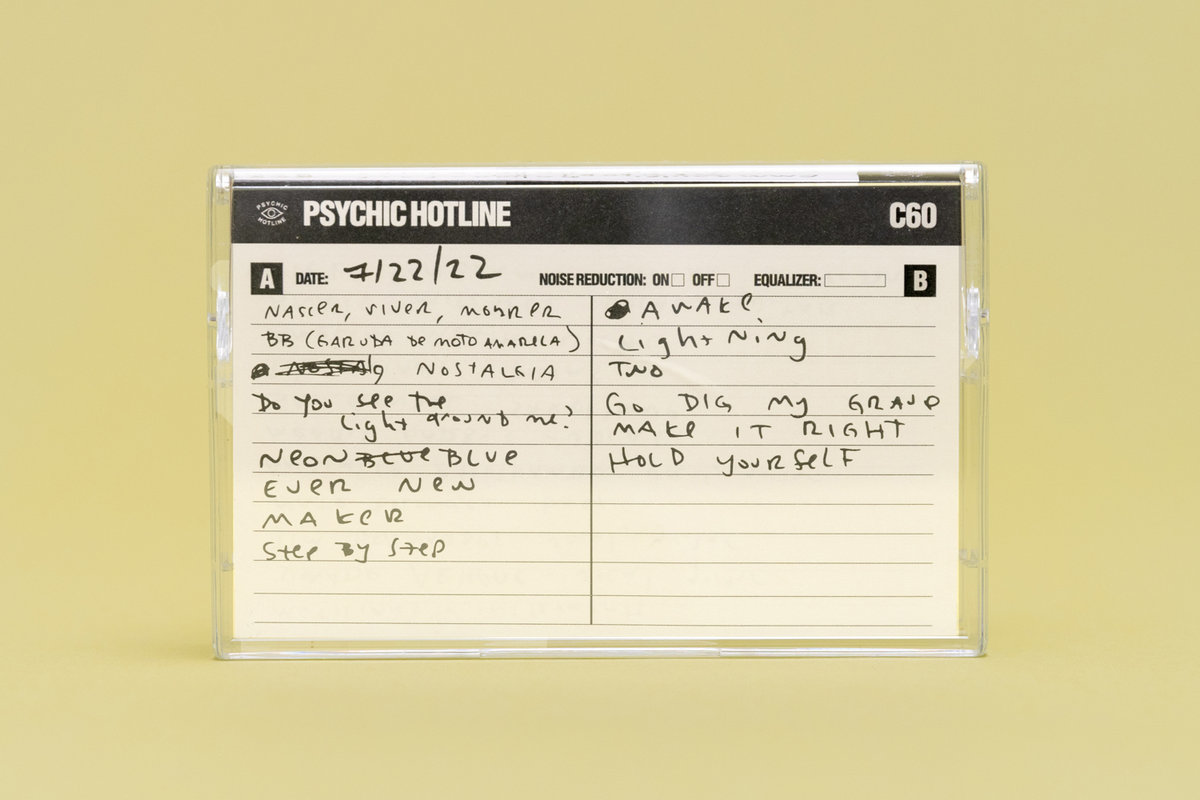 PSYCHIC HOTLINE
PSYCHIC HOTLINE
C60
A DATE: 7/22/22 NOISE REDUCTION: ON OFF EQUALIZER: B
NASCER, VIVER, MORRER
BB (GARUPA DE MOTO AMARELA)
NOSTALGIA
Do You see the
Light around me?
NEON BLUE BLUE
EVER NEW
MAKER
Step By Step
AWAKE
Lightning
TWO
GO DIG My GRAVE
MAKE IT RIGHT
HOLD YOURSELF